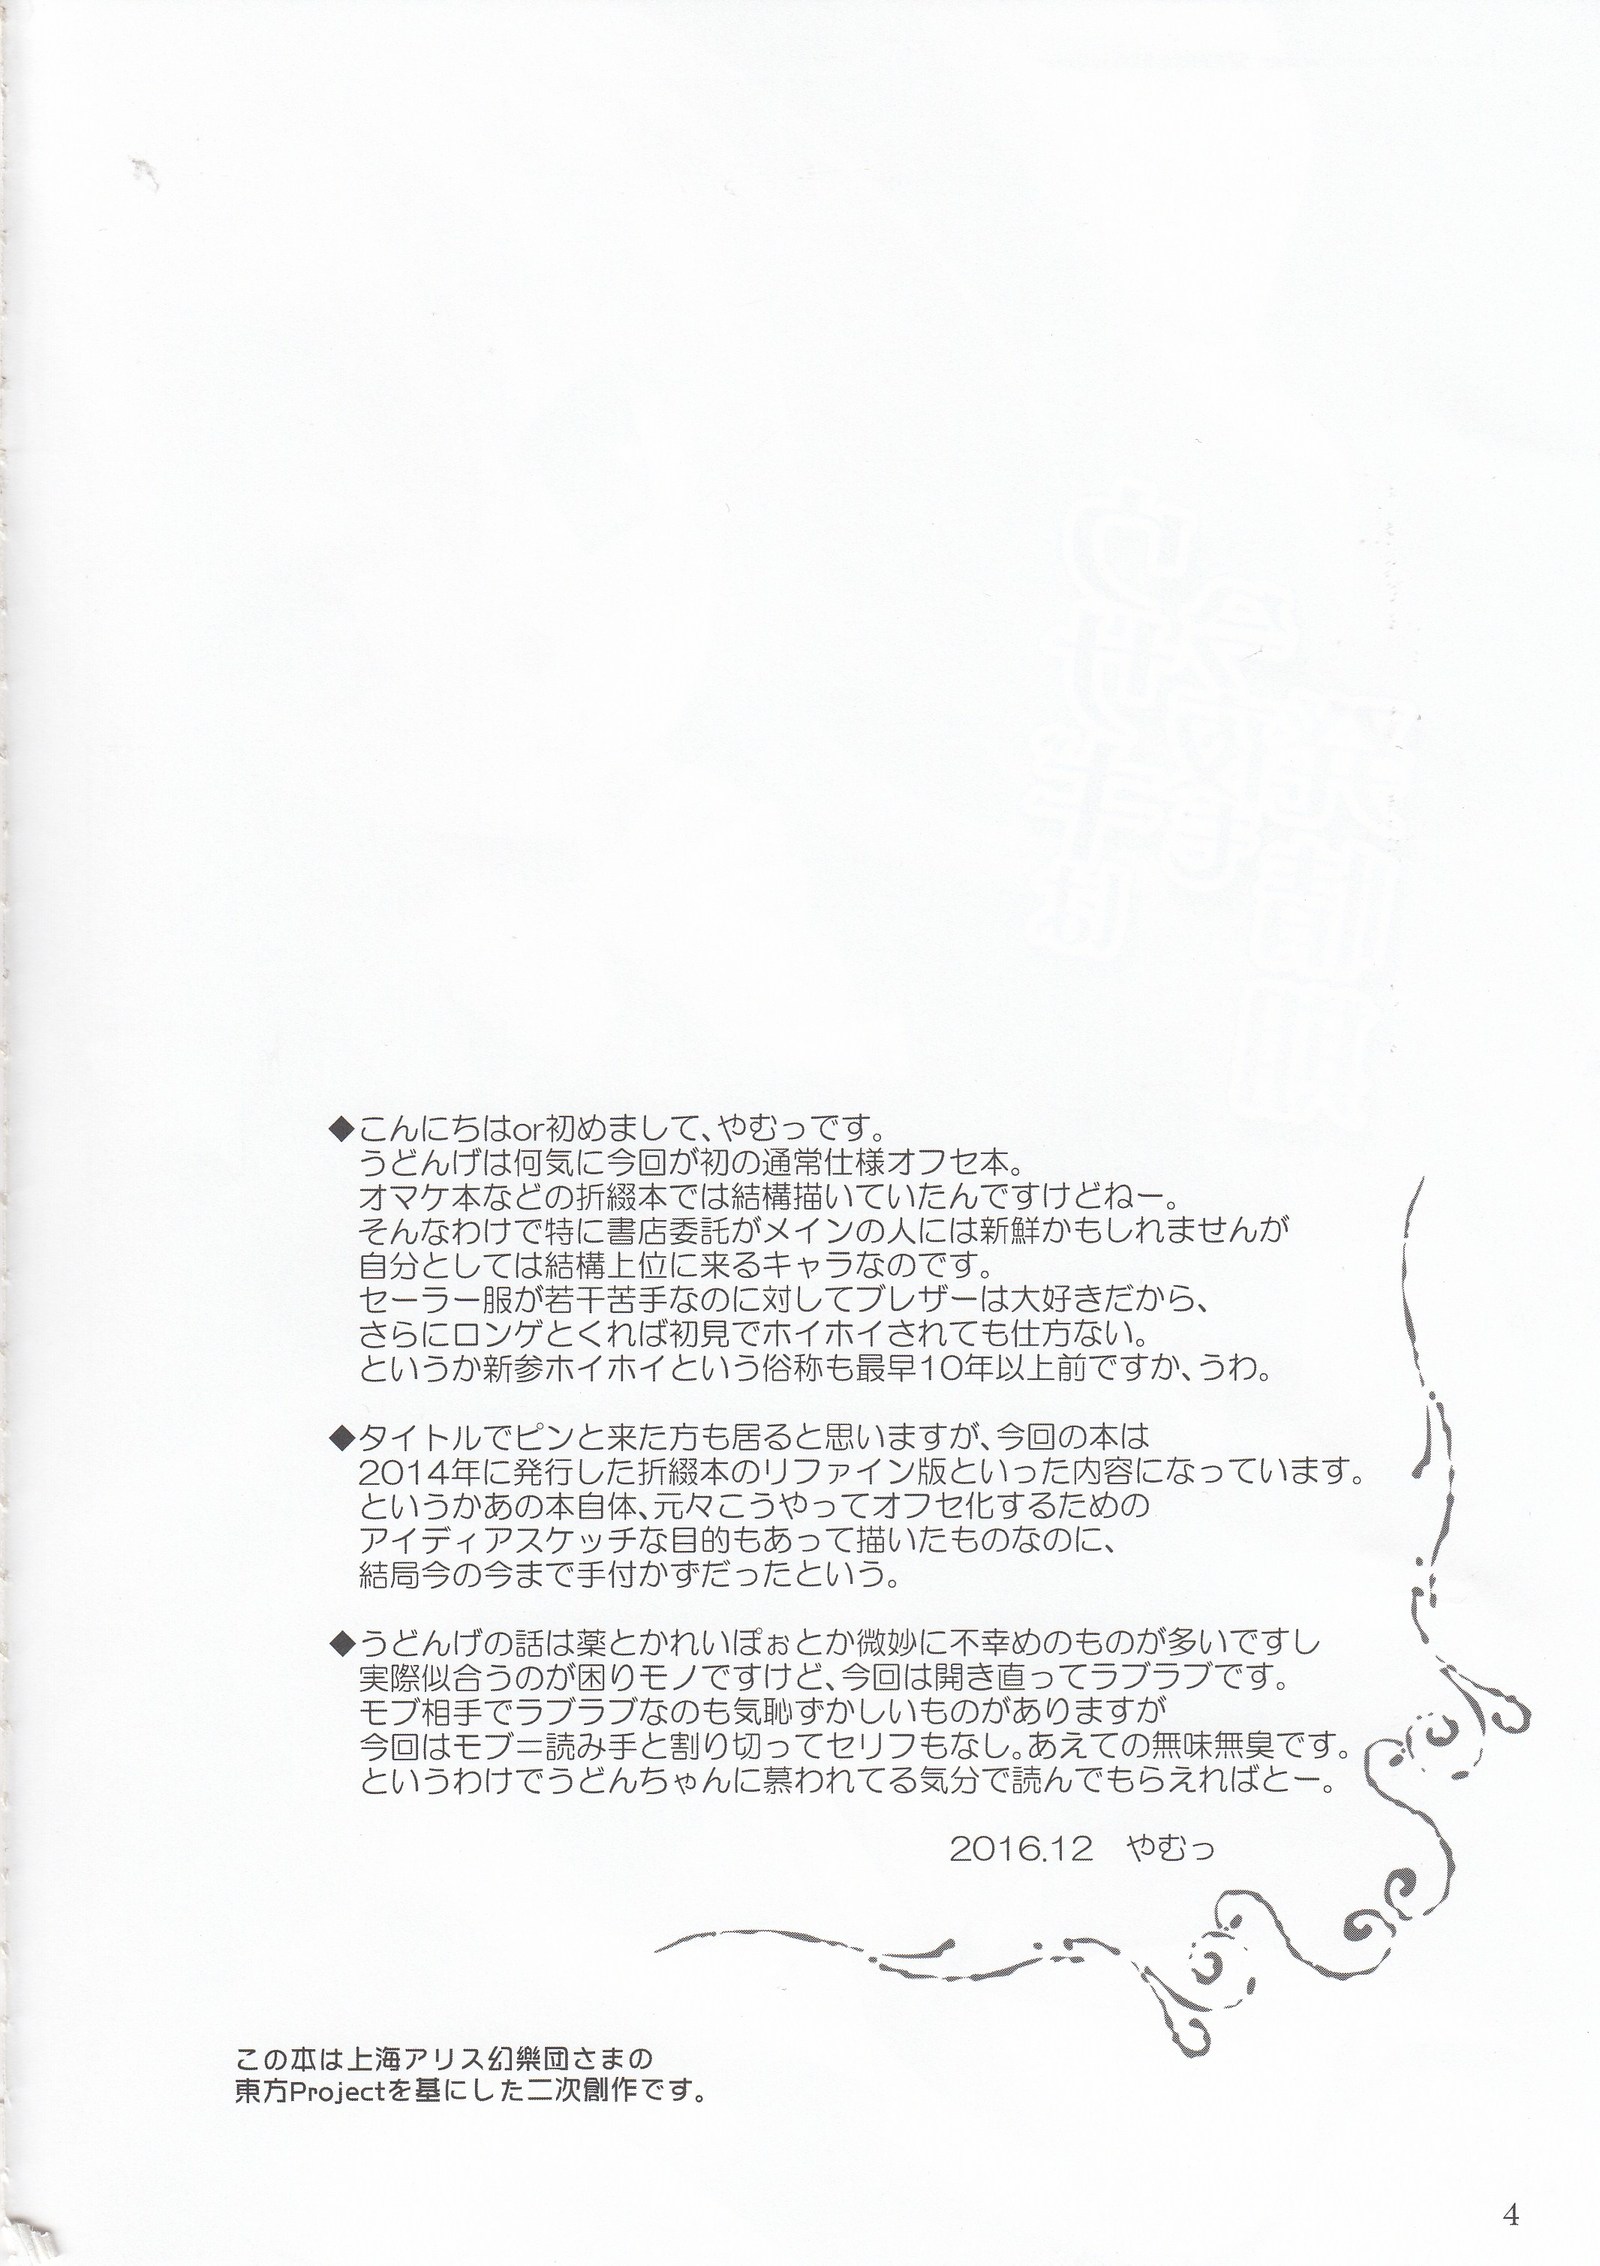 ◆こんにちはor初めまして、やむっです。
うどんげは何気に今回が初の通常仕様オフセ本。
オマケ本などの折綴本では結構描いていたんですけどねー。
そんなわけで特に書店委託がメインの人には新鮮かもしれませんが
自分としては結構上位に来るキャラなのです。
セーラー服が若干苦手なのに対してブレザーは大好きだから、
さらにロンゲとくれば初見でホイホイされても仕方ない。
というか新参ホイホイという俗称も最早10年以上前ですか、うわ。
◆タイトルでピンと来た方も居ると思いますが、今回の本は
2014年に発行した折綴本のリファイン版といった内容になっています。
というかあの本自体、元々こうやってオフセ化するための
アイディアスケッチな目的もあって描いたものなのに、
結局今の今まで手付かずだったという。
◆うどんげの話は薬とかれいぽぉとか微妙に不幸めのものが多いですし
実際似合うのが困りモノですけど、今回は開き直ってラブラブです。
モブ相手でラブラブなのも気恥ずかしいものがありますが
今回はモブ＝読み手と割り切ってセリフもなし。あえての無味無臭です。
というわけでうどんちゃんに慕われてる気分で読んでもらえればとー。
2016.12　やむっ
この本は上海アリス幻樂団さまの
東方Projectを基にした二次創作です。
4